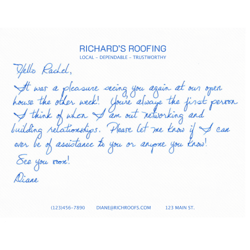 RICHARD'S ROOFING
LOCAL - DEPENDABLE - TRUSTWORTHY
Hello Rachel,
It was a pleasure seeing you again at our open
house the other week! Youre always the first person
I think of when I am out networking and
building relationships. Please let me know if I can
ever be of assistance to you or anyone you know!
See you soon!
Diane
(123)456-7890 DIANE@RICHROOFS.COM 123 MAIN ST.